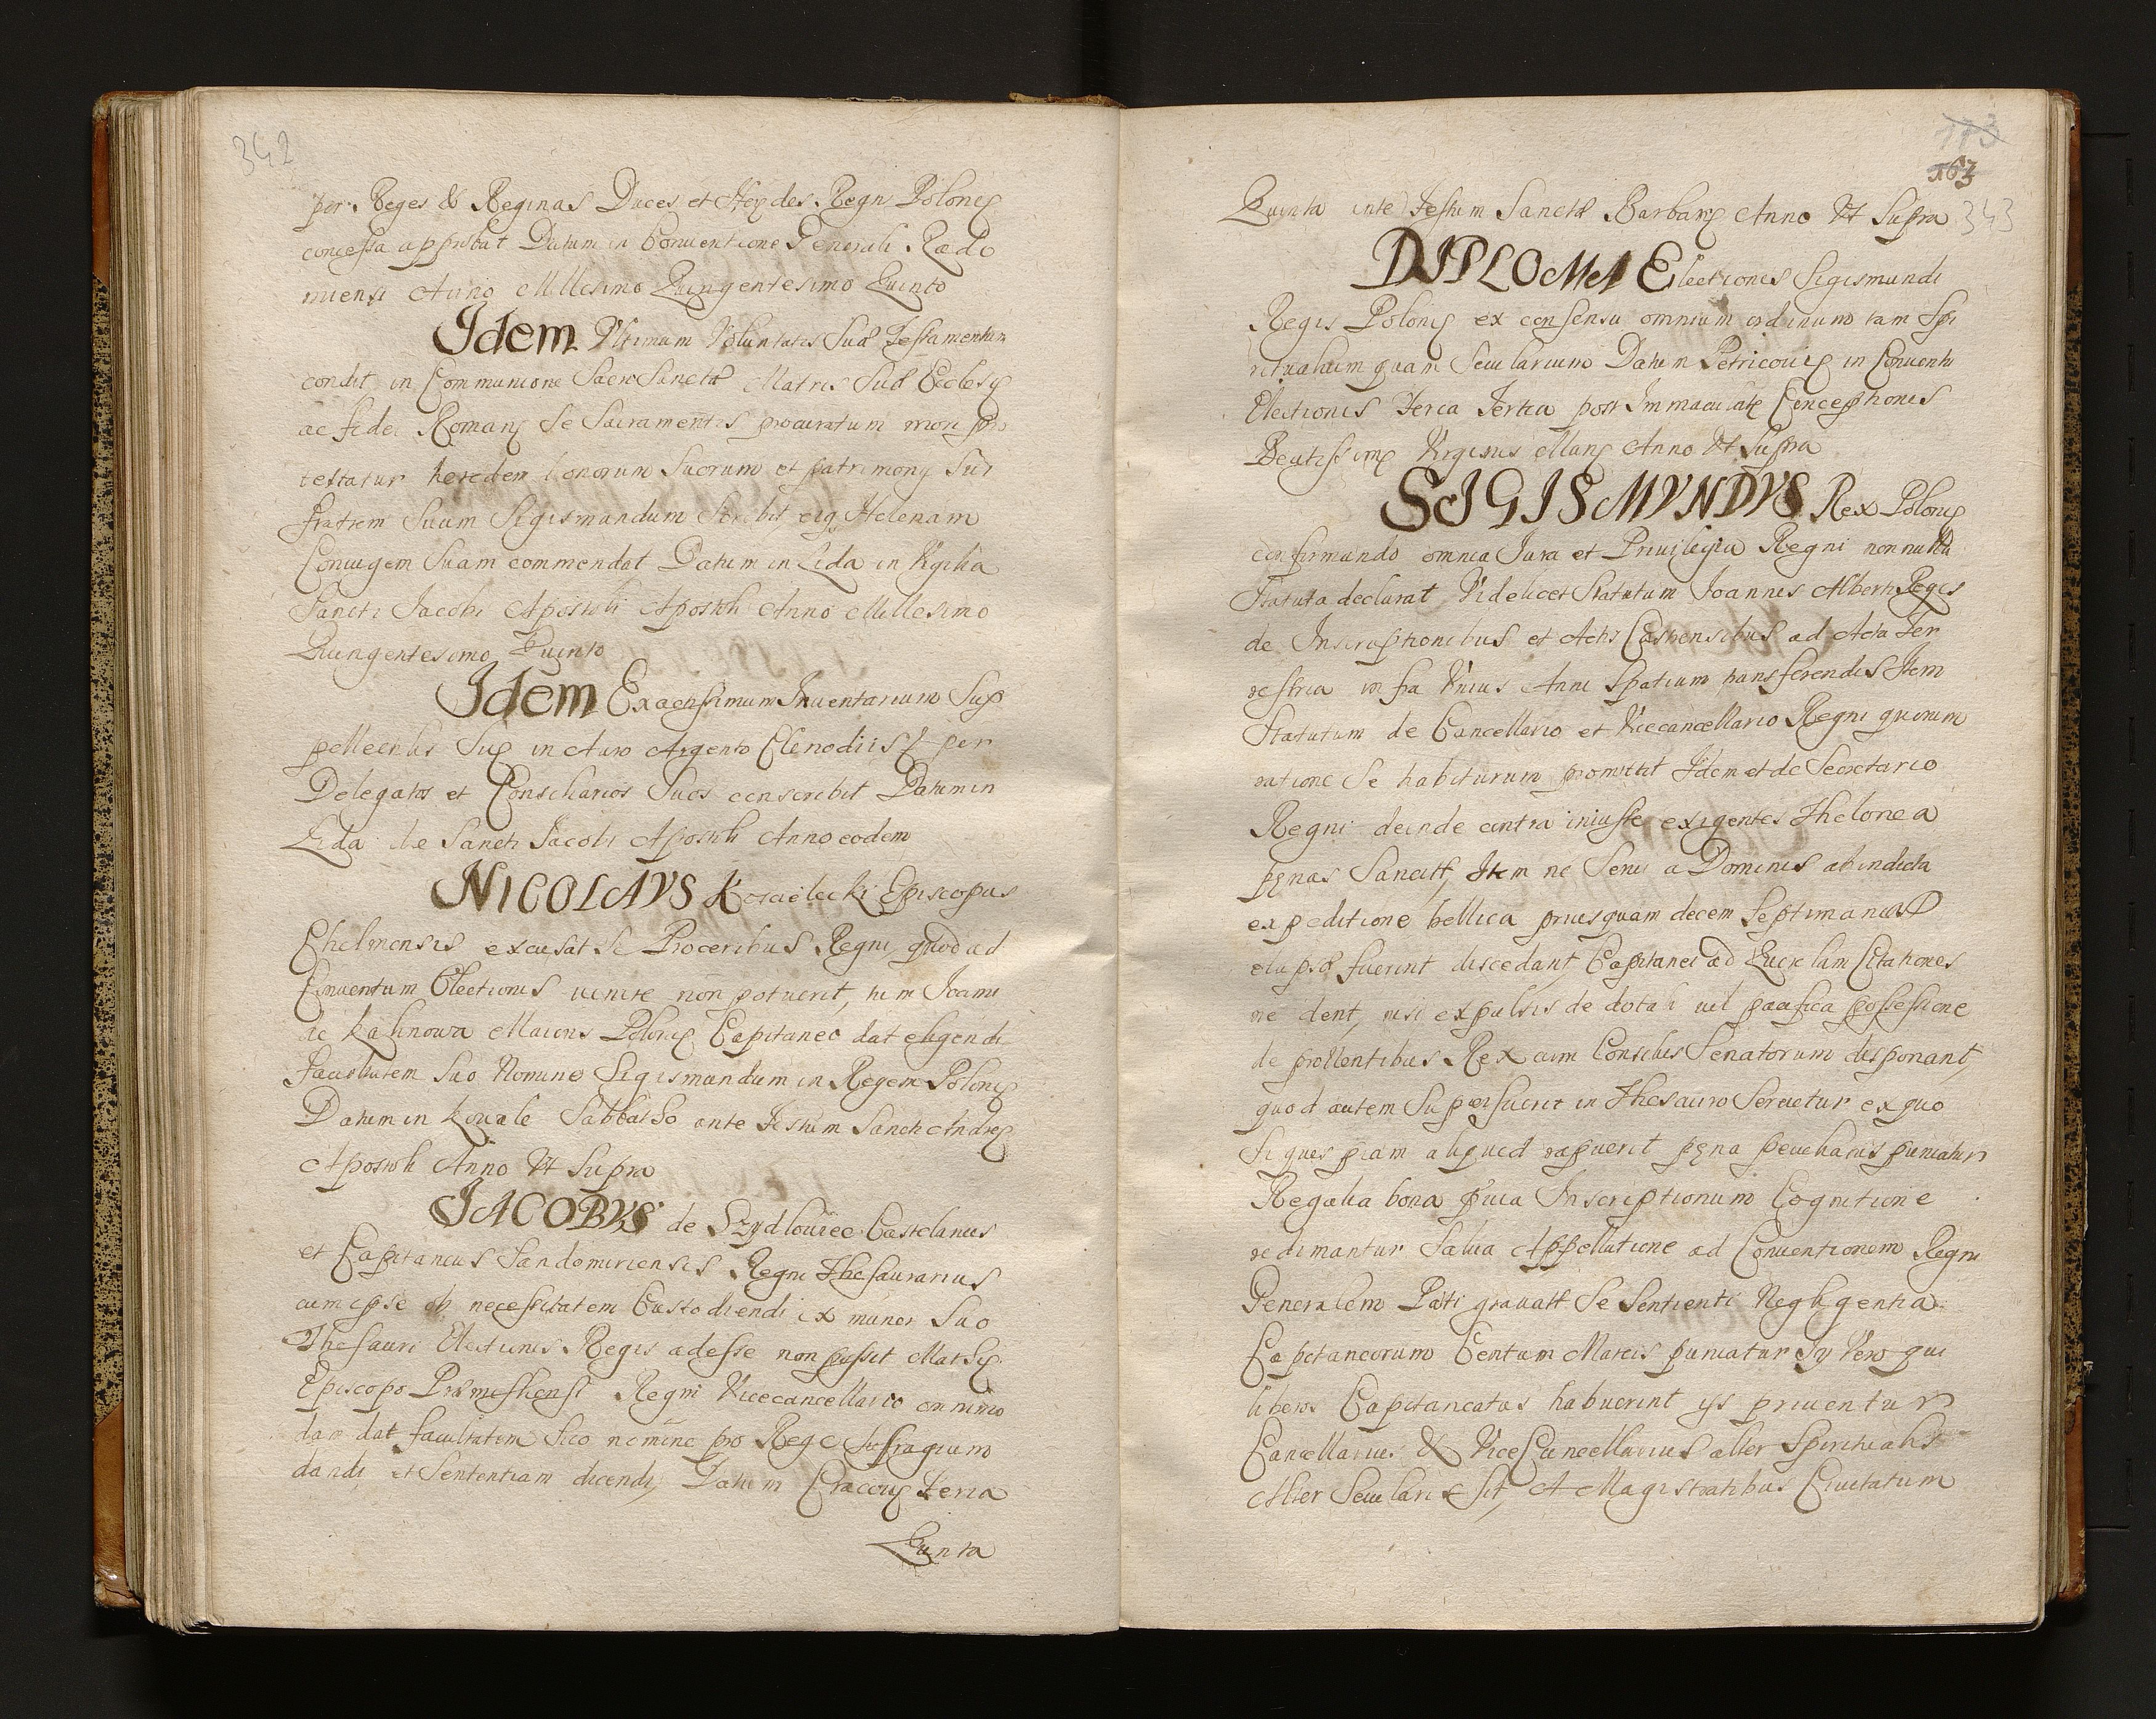 342
per Reges & Reginas Duces et Hęędes Regni Polonię
concessa approbat Datum in Conuentione Generali Rado
miensi Anno Millesimo Quingentesimo Quinto
Idem Vltimum Voluntatis Suæ Testamentum
condit in Communione SacroSanctæ Matris Suæ Eclesię
ac fidei Romanę Se Sacramentis procuratum mori pro
testatur heredem bonorum Suorum et patrimonij Sui
fratrem Suum Sigismundum Scribit eiq Helenam
Coniugem Suam commendat Datum in Lida in Vigilia
Sancti Jacobi Apostoli Apostoli Anno Millesimo
Quingentesimo Quinto
Idem Exactissimum Inuentarium Sup
pellectilis Suę in Auro Argento Clenodiis & per
Delegatos et Consiliarios Suos conscribit Datum in
Lida die Sancti Jacobi Apostoli Anno eodem
NICOLAVS Koscielecki Episcopus
Chelmensis excusat se Proceribus Regni quod ad
Conuentum Electionis uenire non potuerit, tum Joanni
de Kalinowa Maioris Polonię Capitaneo dat eligendi
facultatem Suo Nomine Sigismundum in Regem Polonię
Datum in Kovale Sabbatho ante Festum Sancti Andreę
Apostoli Anno Vt Supra
JACOBVS de Szydlouiec Castelanus
et Capitaneus Sandomiriensis Regni Thesaurarius
cum ipse ob necessitatem Custodiendi ex munere Suo
Thesauri Electionis Regis adesse non possit Mathię
Episcopo Præmisliensi Regni Vicecancellario omnimo
dam dat facultatem Suo nomine pro Rege Sufragium
dandi et Sententiam dicendi, Datum Cracouię Feria
Quinta
173
163
343
Quinta ante Festum Sanctæ Barbarę Anno Vt Supra
DIPLOMA Electionis Sigismundi
Regis Polonię ex consensu omnium ordinum tam Spi
ritualium quam Secularium Datum Petricouię in Conuentu
Electionis Feria Tertia post Immaculatę Conceptionis
Beatissimę Virginis Marię Anno Vt Supra
SIGISMVNDVS Rex Polonię
confirmando omnia Jura et Priuilegia Regni nonnulla
Statuta declarat Videlicet Statutum Joannis Alberti Regis
de Inscriptionibus et Actis Castrensibus ad Acta Ter
restria infra Vnius Anni Spatium transferendis Item
Statutum de Cancellario et Vicecancellario Regni quorum
ratione Se habiturum promittit Idem et de Secretario
Regni deinde contra iniuste exigentes Thelonea
pęnas Sancitt, Item ne Serui a Dominis ab indicta
expeditione bellica priusquam decem Septimanæ
elapsæ fuerint discedant, Capitanei ad Querelam Citationes
ne dent, nisi expulsis de dotali uel pacifica possessione
de prouentibus Rex cum Consilijs Senatorum disponant,
quod autem Superfuerit in Thesauro Seruetur ex quo
Si quespiam aliquid rapuerit pęna peculiatus puniatur
Regalia bona preuia Inscriptionum Cognitione
redimantur Salua Appellatione ad Conuentionem Regni
Generalem Parti grauatt Se Sentienti Negligentia
Capitaneorum Centum Marcis puniatur Ij Vero qui
liberos Capitaneatus habuerint ijs priuentur
Cancellarius & ViceCancellarius alter Spiritualis
Alter Secularis Sit, A Magistratibus Ciuitatum